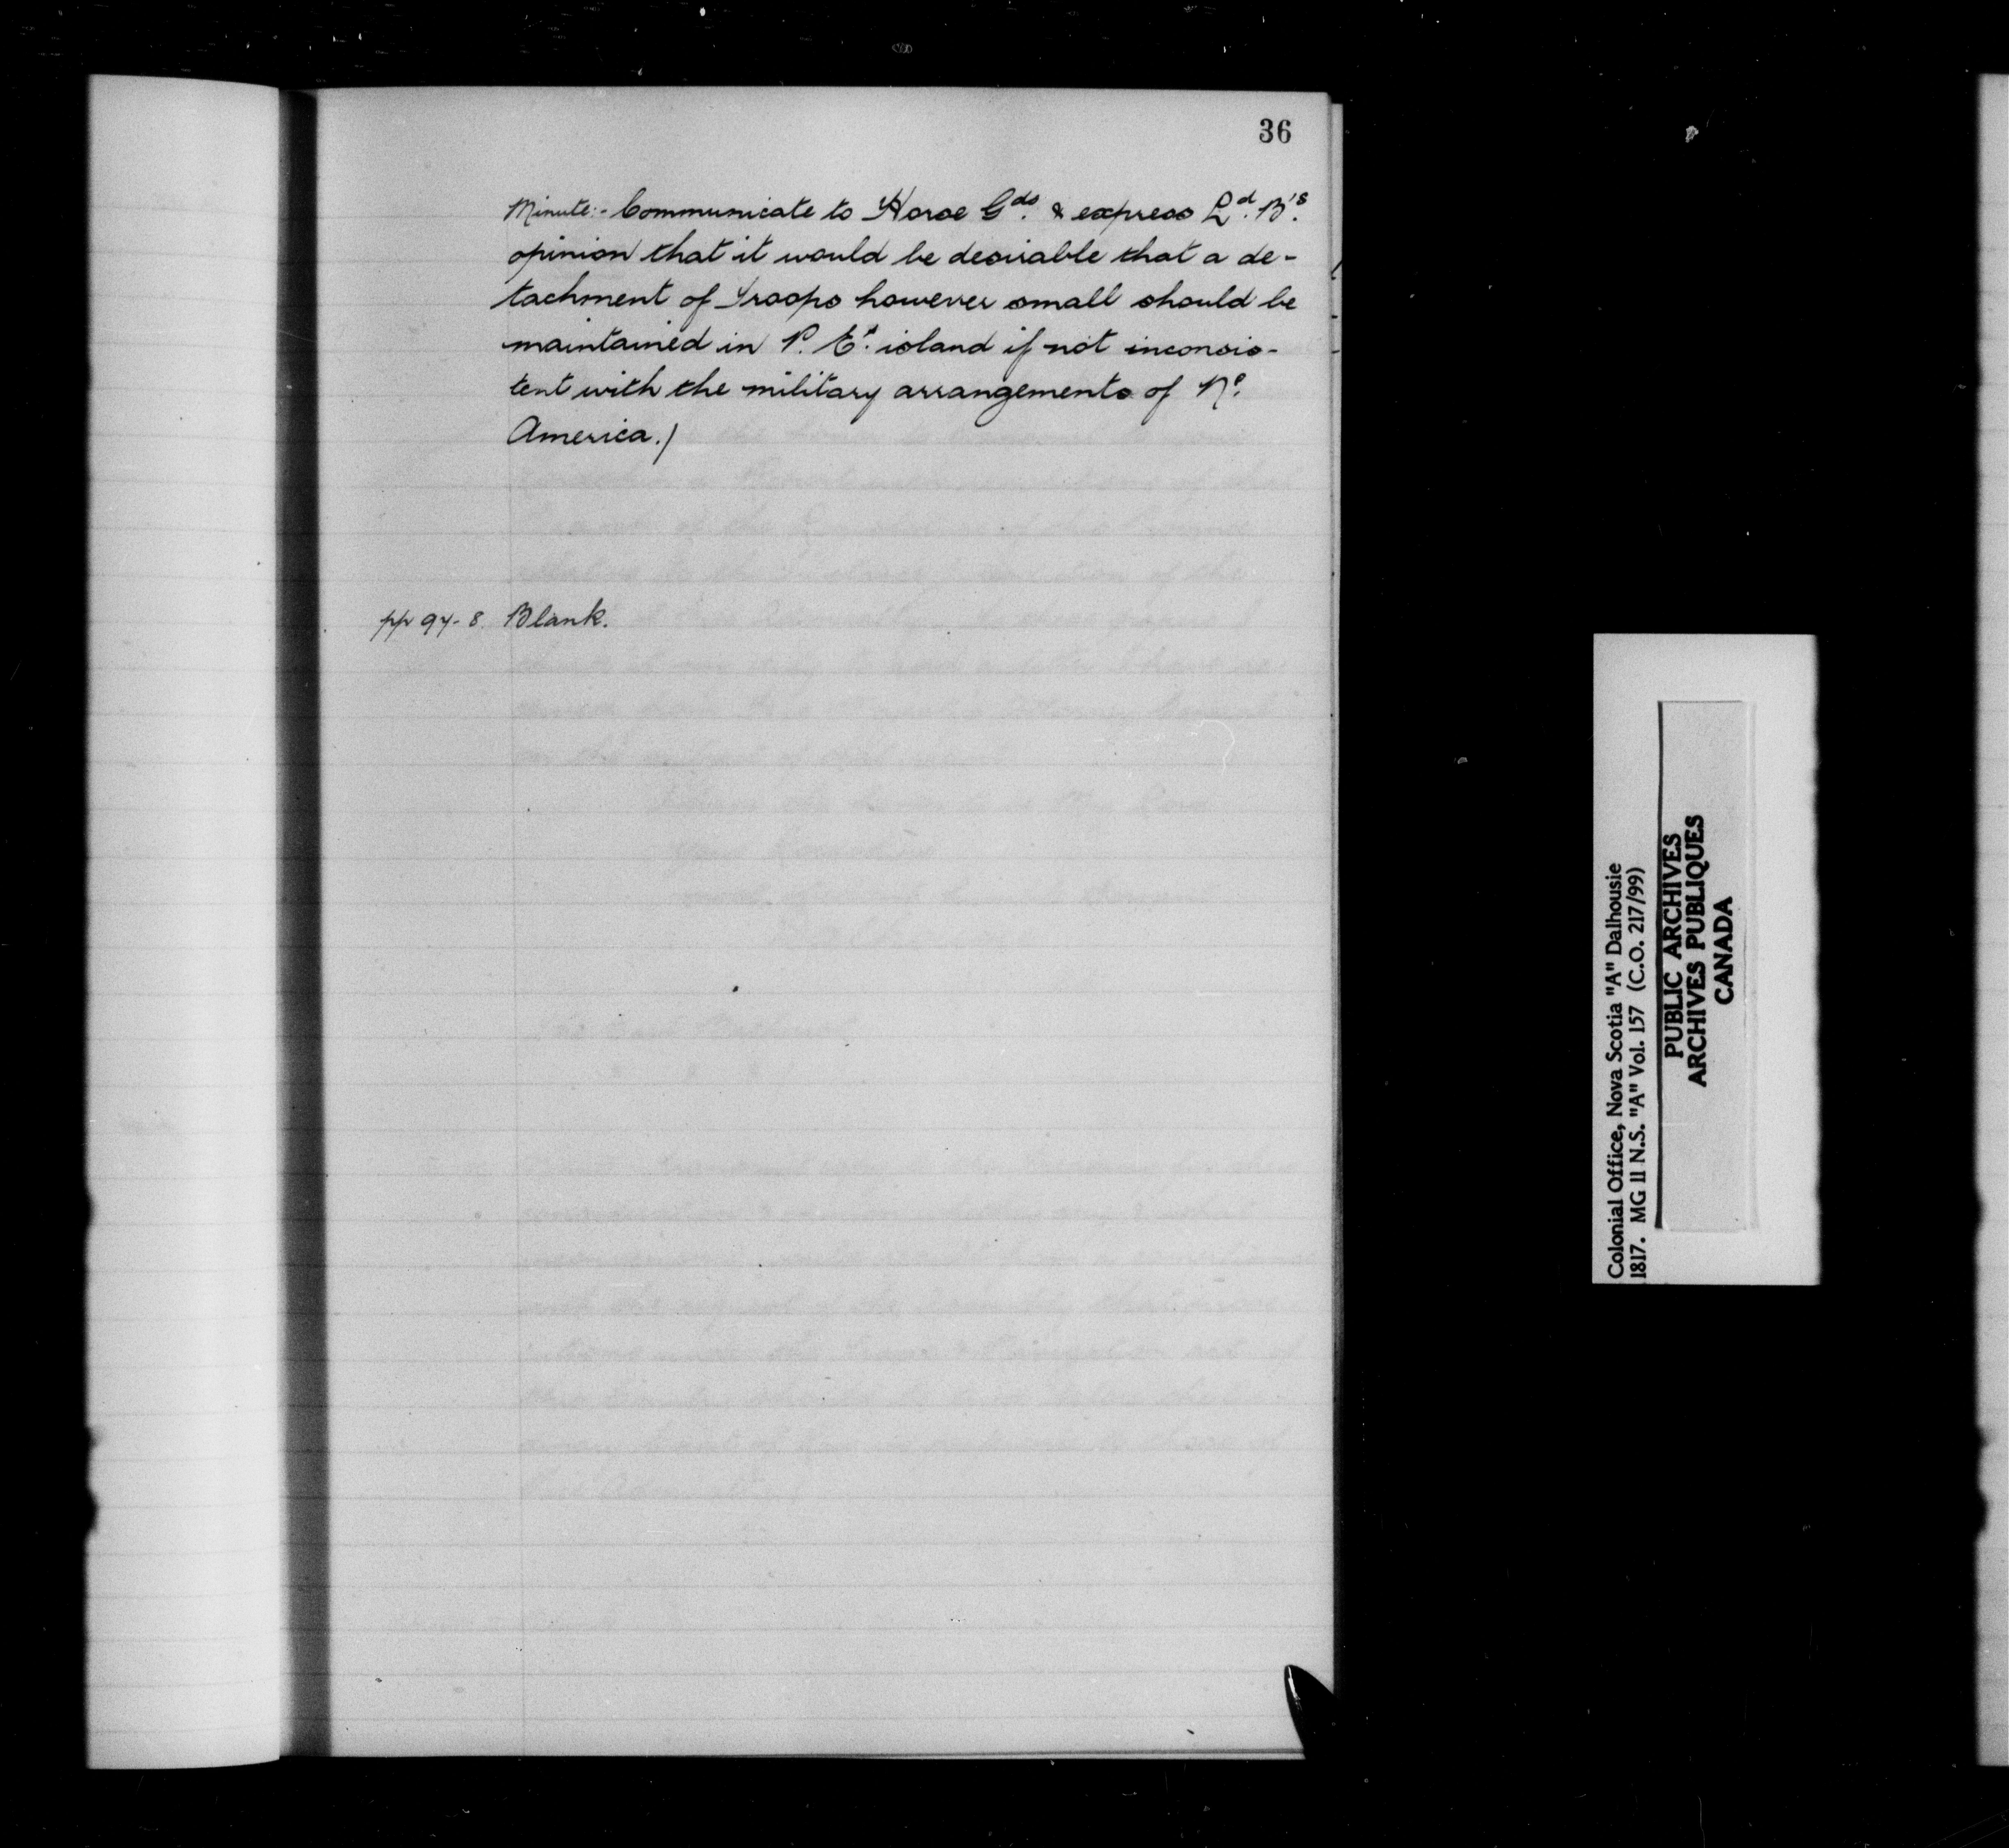 36
Minute:- Communicate to Horse Gds. & express Ld. B's.
opinion that it would be desirable that a de-
tachment of Troops however small should be
maintained in P. Ed. island if not inconsis-
tent with the military arrangements of No.
America.)
pp 97-8. Blank.
Colonial Office, Nova Scotia "A" Dalhousie
1817. MG 11 N.S. "A" Vol. 157 (C.O. 217/99)
PUBLIC ARCHIVES
ARCHIVES PUBLIQUES
CANADA